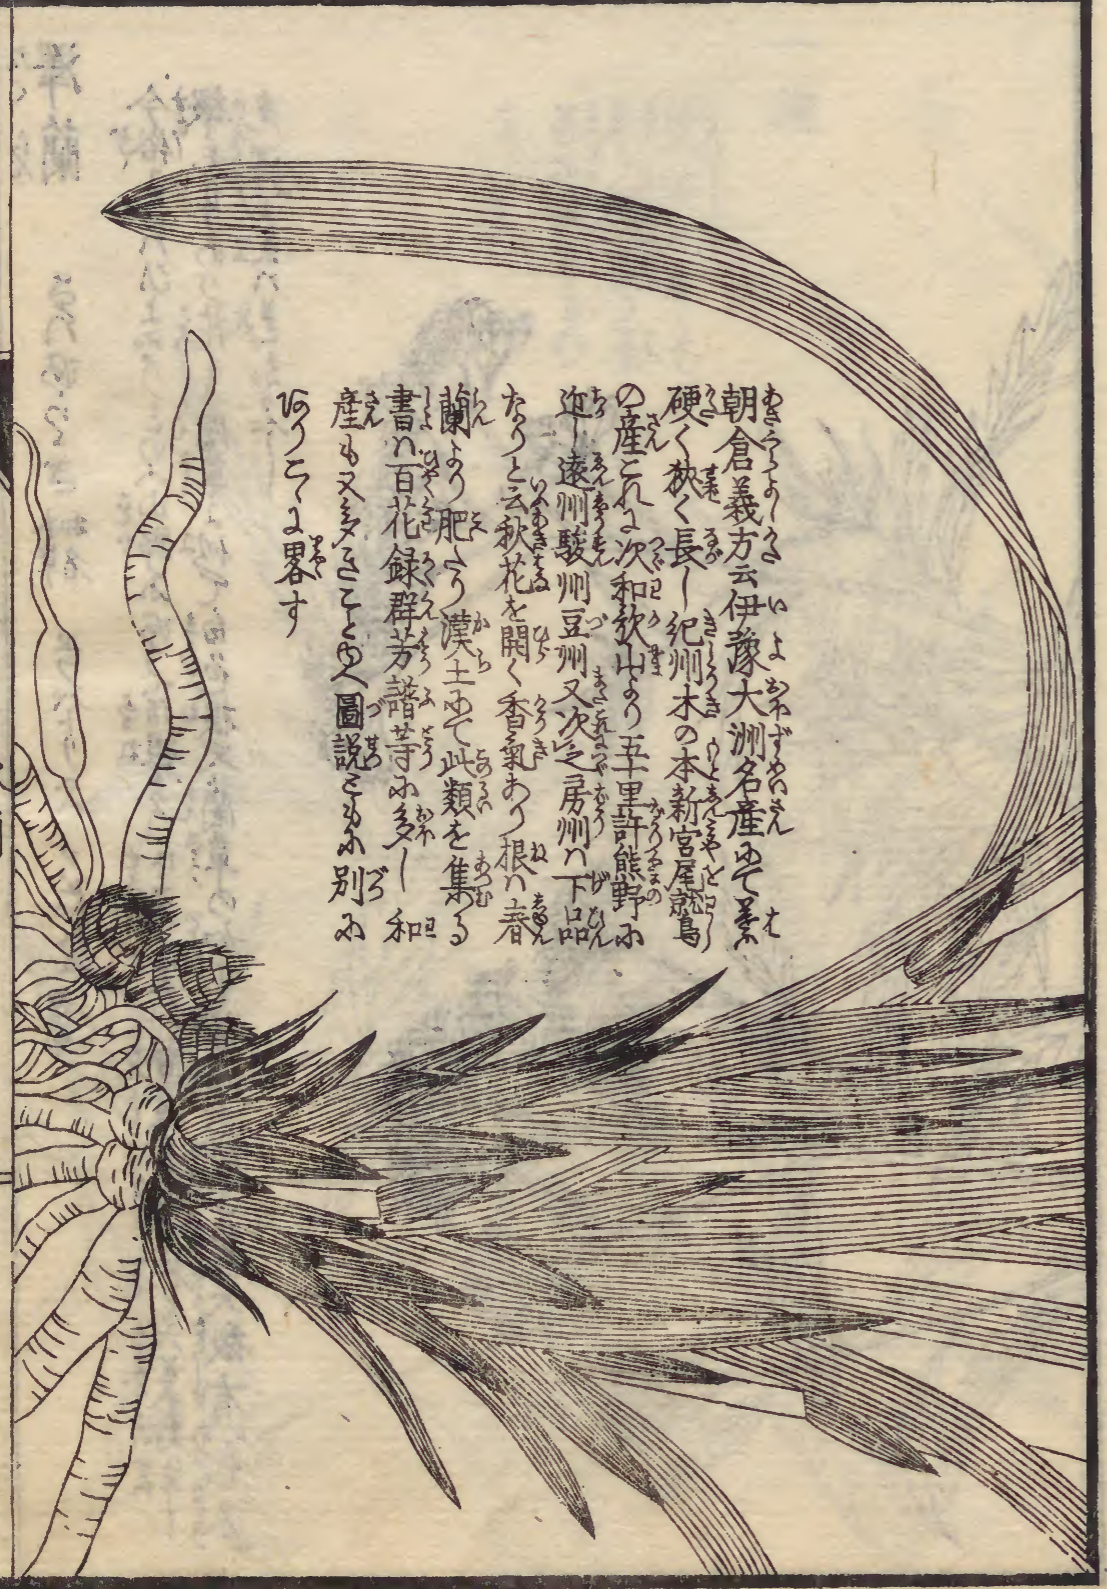 朝倉義方云伊豫大洲名産にて葉
硬く狹く長し紀州木の本新宮尾鷲
の産これに次和歌山より五十里許熊野に
近し遠州駿州豆州又次之房州ハ下品
なりと云秋花を開く香氣あり根ハ春
蘭より肥たり漢土にて此類を集る
書ハ百花録群芳譜等に多し和
産も又多きことゆへ圖説ともに別に
ありこゝに畧す